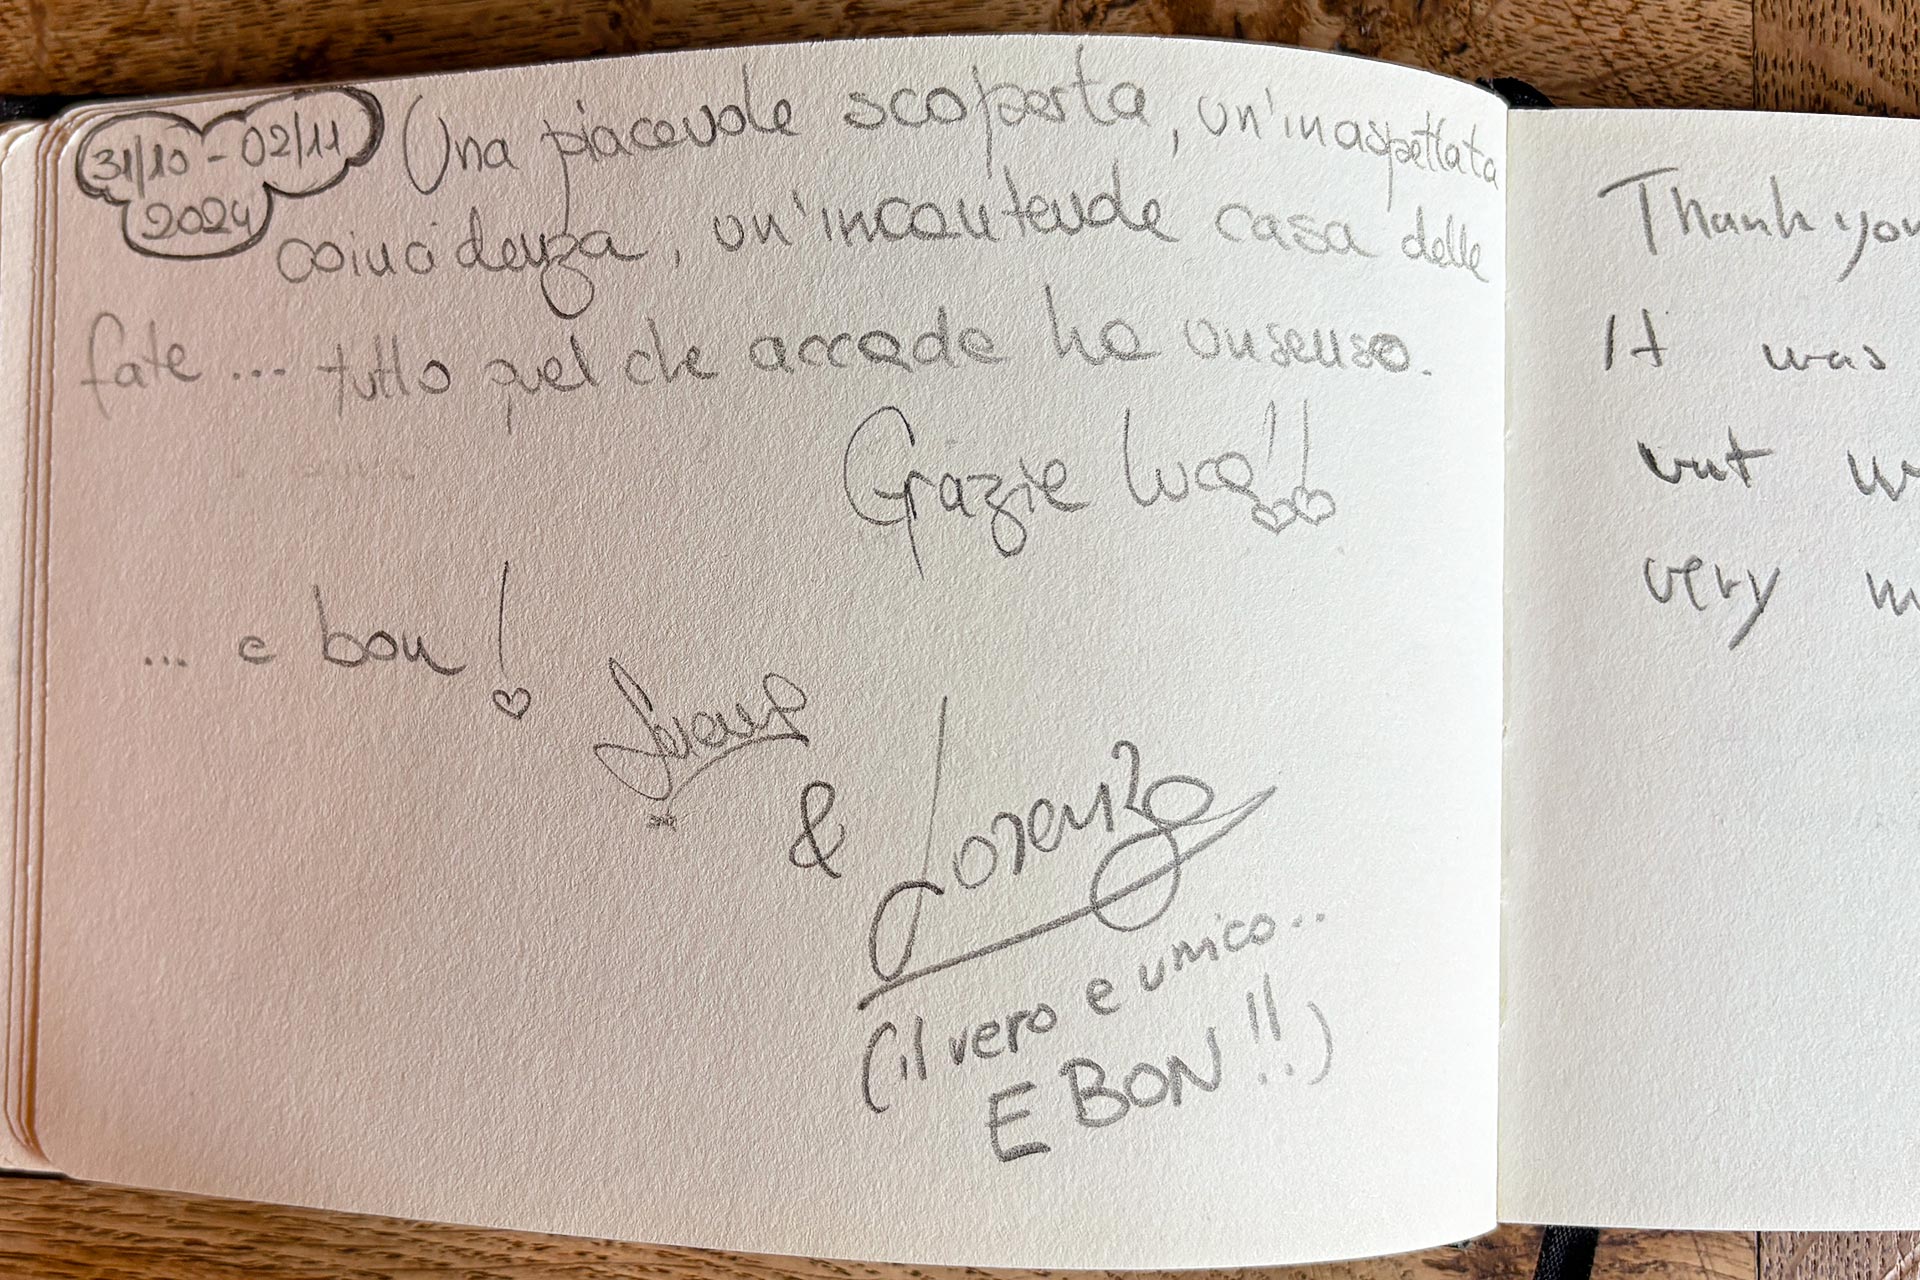 31/10 - 02/11
2024
Una piacevole scoperta, un'inaspettata
coincidenza, un'incantevole casa delle
fate ... tutto quel che accade ha un senso.
Grazie Luca!!
... e bon!
&
Lorenzo
(il vero e unico..
E BON!!)
Thank you
It was
very